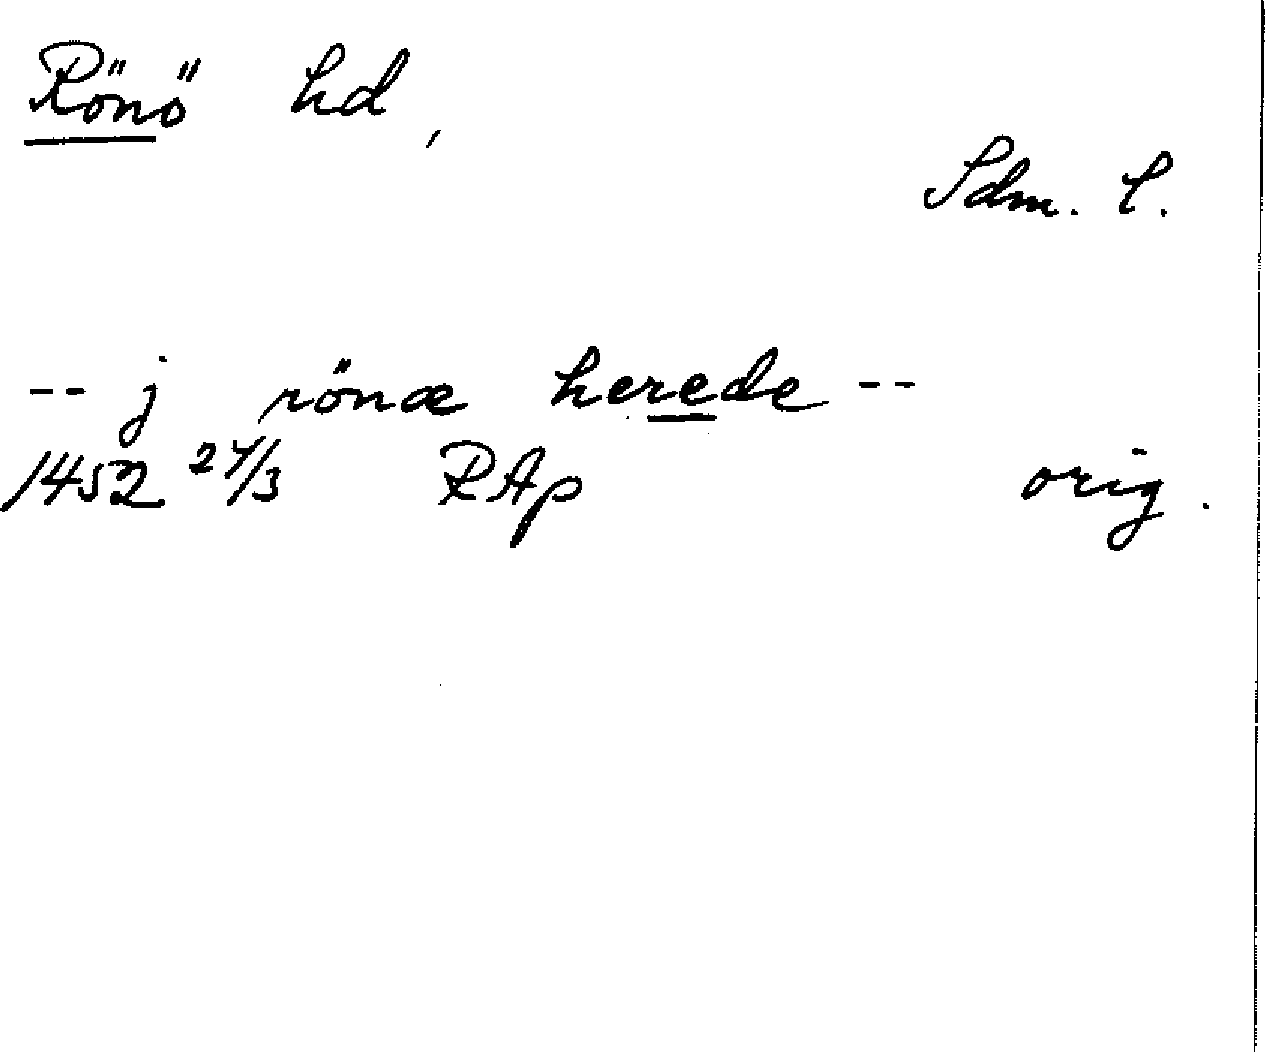 Rönö hd,
Sdm. l.
-- j rönæ herede --
1452 27/3 RAp orig.